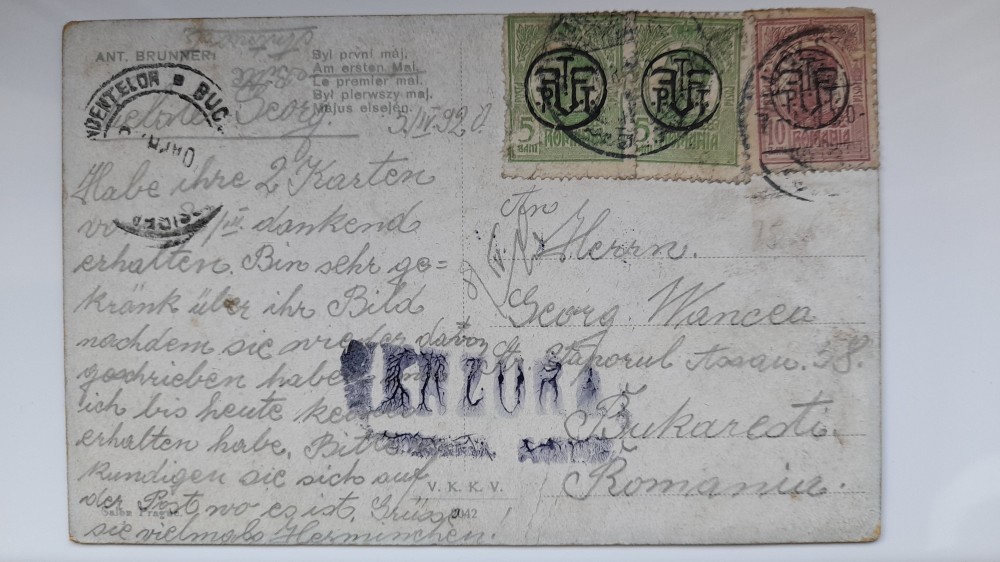 ANT. BRUNNER:
Byl první máj.
Am ersten Mai.
Le premier mai.
Był pierwszy maj.
Május elsején.
Georg.
5/IV 920.
Habe ihre 2 Karten
/III. dankend
erhalten. Bin sehr ge=
kränk über ihr Bild
nachdem sie wieder davon
geschrieben haben
ich bis heute
erhalten habe. Bitte
kundigen sie sich auf
der Post, wo es ist. Grüsse
sie vielmals Herminchen.
Salon Prague
V. K. K. V.
042
5 BANI ROMANIA
5 BANI ROMANIA
10 ROMANIA
An
Herrn.
Georg. Wancea
Str. Vaporul Assan. 58.
Bukarest.
Romania.
CENZURA
BUC